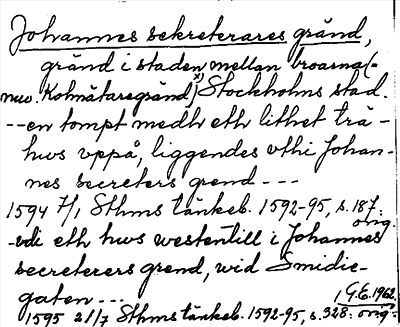 Johannes sekreterares gränd,
gränd i staden mellan broarna (=
nuv. Kolmätaregränd x), Stockholms stad.
--en tompt medh eth lithet trä-
hws vppå, liggendes vthi Johan-
nes secreters grend ---
1594 7/1 Sthms tänkeb. 1592-95, s. 187.
orig.
-vdi eth hws westentill i Johannes
secreterers grend, wid Smidie-
gaten ---
G.E. 1962.
1595 21/7 Sthms tänkeb. 1592-95, s. 328. orig.